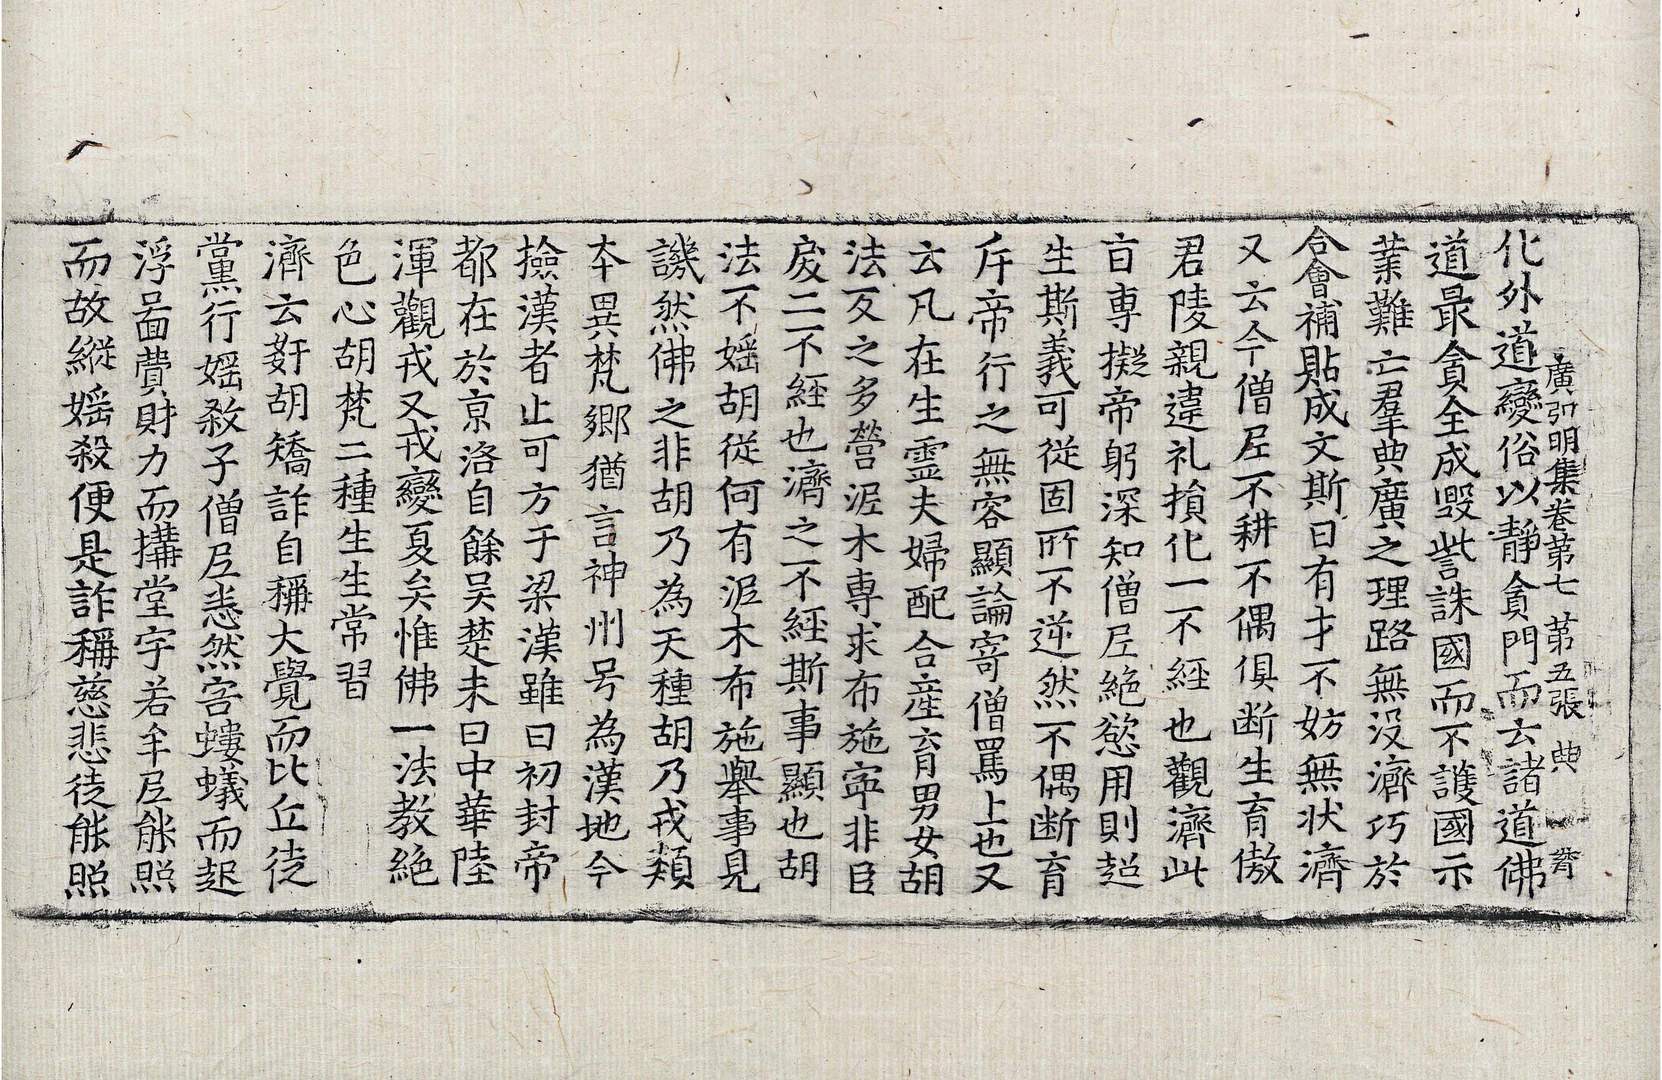 廣弘明集卷第七 第五張 典
化外道變俗以靜貪門而云諸道佛
道最貪全成毀呰誅國而不護國示
業難亡羣典廣之理路無沒濟巧於
合會補貼成文斯曰有才不妨無狀濟
又云今僧尼不耕不偶俱断生育傲
君陵親違礼損化一不經也觀濟此
言專擬帝躬深知僧尼絶慾用則超
生斯義可從固所不逆然不偶断育
斥帝行之無容顯論寄僧罵上也又
云凡在生靈夫婦配合産育男女胡
法反之多營泥木專求布施寧非臣
戾二不經也濟之一不經斯事顯也胡
法不婬胡從何有泥木布施舉事見
譏然佛之非胡乃為天種胡乃戎類
本異梵郷猶言神州号為漢地今
撿漢者止可方于梁漢雖曰初封帝
都在於京洛自餘吴楚未曰中華陸
渾觀戎又戎變夏矣惟佛一法教絶
色心胡梵二種生生常習
濟云姧胡矯詐自稱大覺而比丘徒
黨行婬殺子僧尼悉然害螻蟻而起
浮啚費財力而搆堂宇若牟尼能照
而故縱婬殺便是詐稱慈悲徒能照